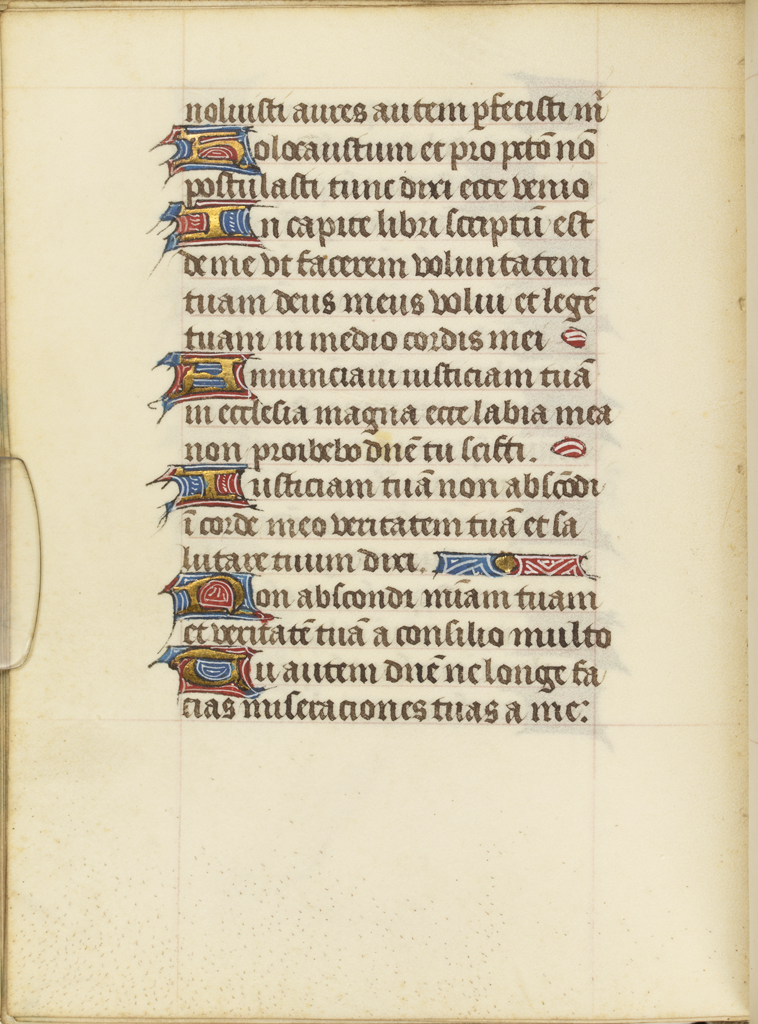 noluisti aures autem ꝑfecisti m̄
Holocaustum et pro pctō nō
postulasti tunc dixi ecce venio
In capite libri scriptū est
de me vt facerem voluntatem
tuam deus meus volui et legē
tuam in medio cordis mei
Annunciaui iusticiam tuā
in ecclesia magna ecce labia mea
non proibebo dn̄e tu scisti.
Iusticiam tuā non abscōdi
ī corde meo veritatem tuā et sa
lutare tuum dixi.
Non abscondi miām tuam
et veritatē tuā a consilio multo
Tu autem dn̄e ne longe fa
cias miseraciones tuas a me: